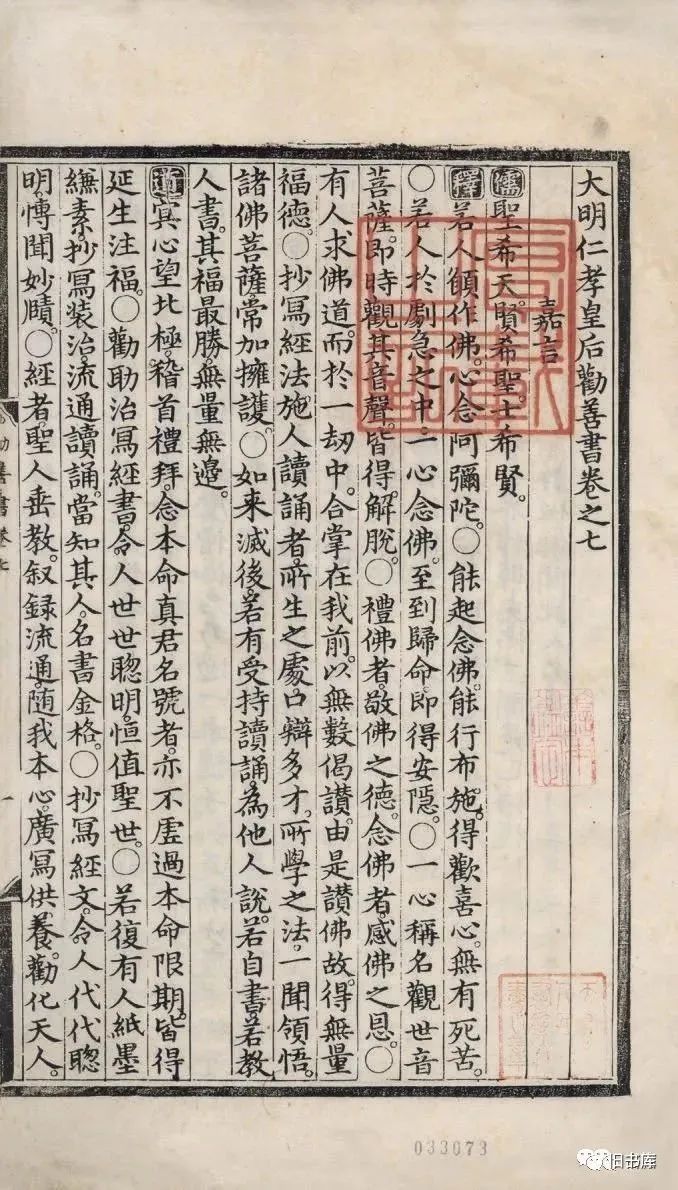 大明仁孝皇后勸善書卷之七
嘉言
儒聖希天。賢希聖。士希賢。
釋若人願作佛。心念阿彌陀。〇能起念佛。能行布施。得歡喜心。無有死苦。
〇若人於劇急之中。一心念佛。至到歸命。即得安隱。〇一心稱名觀世音
菩薩。即時觀其音聲。皆得解脫。〇禮佛者。敬佛之德。念佛者。感佛之恩。〇
有人求佛道。而於一劫中。合掌在我前。以無數偈讃。由是讃佛故。得無量
福德。〇抄寫經法。施人讀誦者。所生之處。口辯多才。所學之法。一聞領悟。
諸佛菩薩常加擁護。〇如来滅後。若有受持讀誦。為他人說。若自書。若教
人書。其福最勝。無量無邊。
道冥心望北極。稽首禮拜。念本命真君名號者。亦不虛過本命限期。皆得
延生注福。〇勸助治寫經書。令人世世聰明。恒值聖世。〇若復有人紙墨
縑素。抄寫裝治。流通讀誦。當知其人。名書金格。〇抄寫經文。令人代代聰
明。慱聞妙賾。〇經者。聖人垂教。叙録流通。隨我本心。廣寫供養。勸化天人。
勸善書卷七
一
033073
旧书库